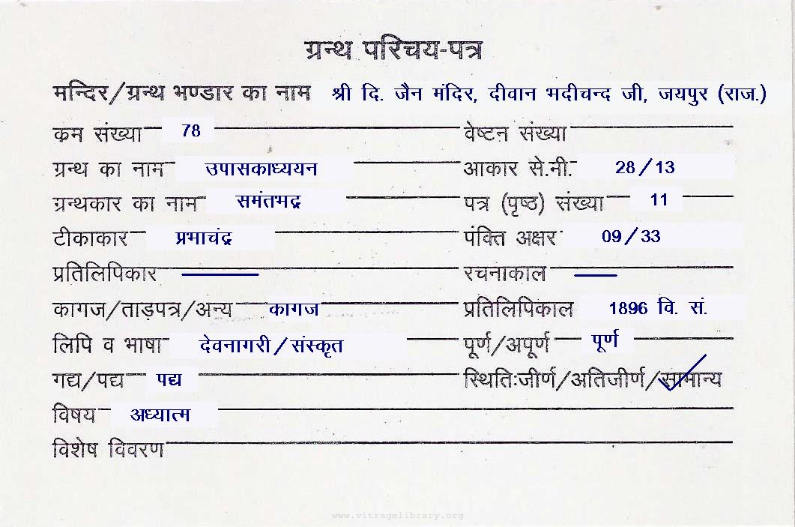 ग्रन्थ परिचय-पत्र
मन्दिर/ग्रन्थ भण्डार का नाम श्री दि. जैन मंदिर, दीवान भदीचन्द जी, जयपुर (राज.)
कम संख्या 78 वेष्टन संख्या
ग्रन्थ का नाम उपासकाध्ययन आकार से.मी. 28/13
ग्रन्थकार का नाम समंतभद्र पत्र (पृष्ठ) संख्या 11
टीकाकार प्रभाचंद्र पंक्ति अक्षर 09/33
प्रतिलिपिकार — रचनाकाल —
कागज/ताड़पत्र/अन्य कागज प्रतिलिपिकाल 1896 वि. सं.
लिपि व भाषा देवनागरी/संस्कृत पूर्ण/अपूर्ण पूर्ण
गद्य/पद्य पद्य स्थितिःजीर्ण/अतिजीर्ण/सामान्य
विषय अध्यात्म
विशेष विवरण
www.vitragelibrary.org